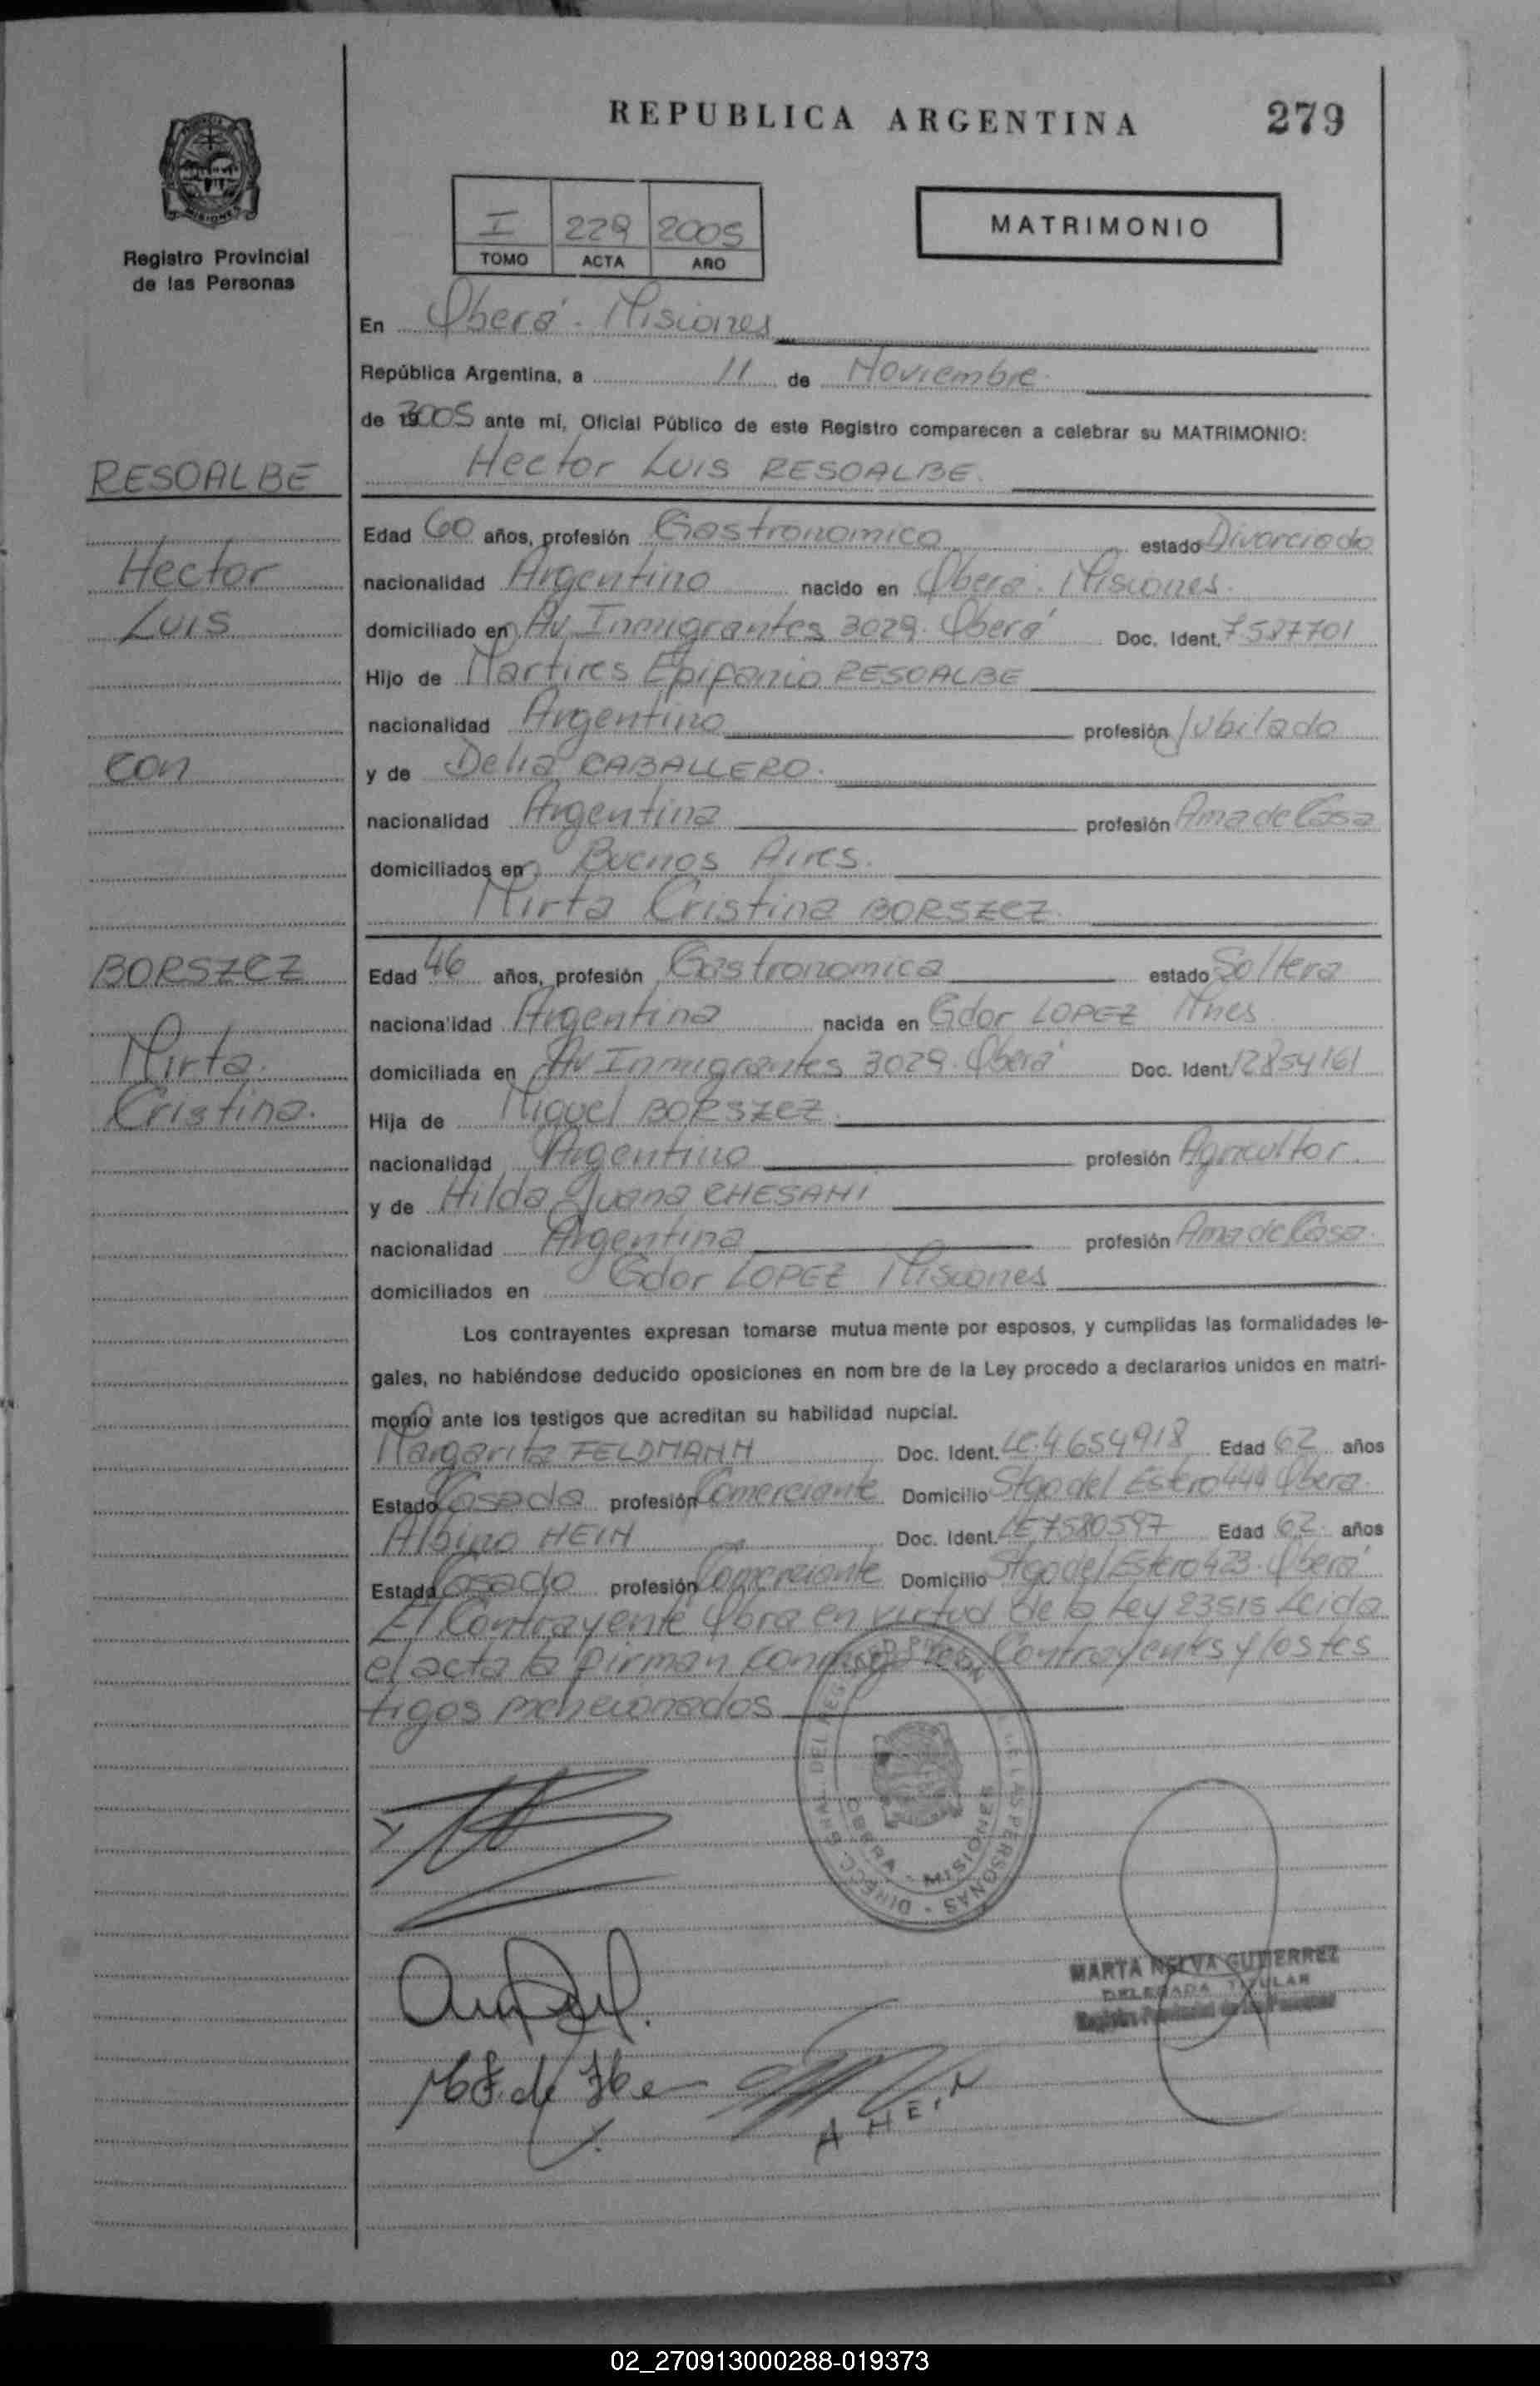 REPUBLICA ARGENTINA
279
MISIONES
Registro Provincial
de las Personas
I 229 2005
TOMO ACTA AÑO
MATRIMONIO
En Oberá - Misiones
República Argentina, a 11 de Noviembre
de 2005 ante mí, Oficial Público de este Registro comparecen a celebrar su MATRIMONIO:
RESOALBE
Hector Luis RESOALBE.
Edad 60 años, profesión Gastronomico estado Divorciado
Hector
nacionalidad Argentino nacido en Oberá. Misiones.
Luis
domiciliado en Av Inmigrantes 3029. Oberá Doc. Ident. 7587701
Hijo de Martires Epifanio RESOALBE
nacionalidad Argentino profesión Jubilado
con
y de Delia CABALLERO.
nacionalidad Argentina profesión Ama de Casa
domiciliados en Buenos Aires.
Mirta Cristina BORSZCZ.
BORSZCZ
Edad 46 años, profesión Gastronomica estado Soltera
nacionalidad Argentina nacida en Gdor LOPEZ Mnes
Mirta.
domiciliada en Av Inmigrantes 3029. Oberá Doc. Ident. 12854161
Cristina.
Hija de Miguel BORSZCZ.
nacionalidad Argentino profesión Agricultor.
y de Hilda Juana CHESANI
nacionalidad Argentina profesión Ama de Casa.
domiciliados en Gdor LOPEZ Misiones
Los contrayentes expresan tomarse mutua mente por esposos, y cumplidas las formalidades le-
gales, no habiéndose deducido oposiciones en nom bre de la Ley procedo a declararlos unidos en matri-
monio ante los testigos que acreditan su habilidad nupcial.
Margarita FELDMANN Doc. Ident. LC.4654918 Edad 62 años
Estado Casada profesión Comerciante Domicilio Stgo del Estero 444 Oberá.
Albino HEIN Doc. Ident. LE7580597 Edad 62 años
Estado Casado profesión Comerciante Domicilio Stgo del Estero 423. Oberá
El Contrayente Obra en virtud de la Ley 23515 Leida
el acta la firman conmigo los Contrayentes y los tes
tigos mencionados
DIRECC. GRAL. DEL LAS PERSONAS
OBERA - MISIONES
MARTA NELVA GUTIERREZ
DELEGADA TITULAR
Registro Provincial de las Personas
A HEIN
02_270913000288-019373